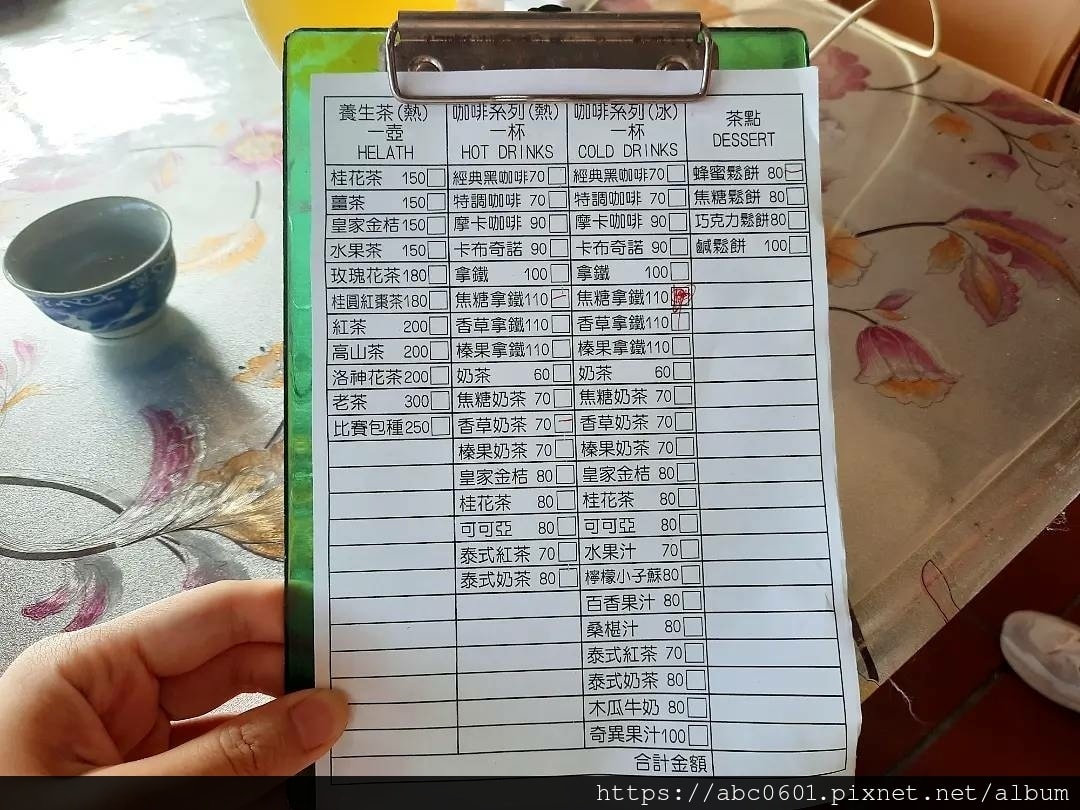 養生茶(熱) 咖啡系列(熱) 咖啡系列(冰) 茶點
一壺 一杯 一杯 DESSERT
HELATH HOT DRINKS COLD DRINKS
桂花茶 150 經典黑咖啡70 經典黑咖啡70 蜂蜜鬆餅 80
薑茶 150 特調咖啡 70 特調咖啡 70 焦糖鬆餅 80
皇家金桔150 摩卡咖啡 90 摩卡咖啡 90 巧克力鬆餅80
水果茶 150 卡布奇諾 90 卡布奇諾 90 鹹鬆餅 100
玫瑰花茶180 拿鐵 100 拿鐵 100
桂圓紅棗茶180 焦糖拿鐵110 焦糖拿鐵110
紅茶 200 香草拿鐵110 香草拿鐵110
高山茶 200 榛果拿鐵110 榛果拿鐵110
洛神花茶200 奶茶 60 奶茶 60
老茶 300 焦糖奶茶 70 焦糖奶茶 70
比賽包種250 香草奶茶 70 香草奶茶 70
榛果奶茶 70 榛果奶茶 70
皇家金桔 80 皇家金桔 80
桂花茶 80 桂花茶 80
可可亞 80 可可亞 80
泰式紅茶 70 水果汁 70
泰式奶茶 80 檸檬小子蘇80
百香果汁 80
桑椹汁 80
泰式紅茶 70
泰式奶茶 80
木瓜牛奶 80
奇異果汁100
合計金額
https://abc0601.pixnet.net/album